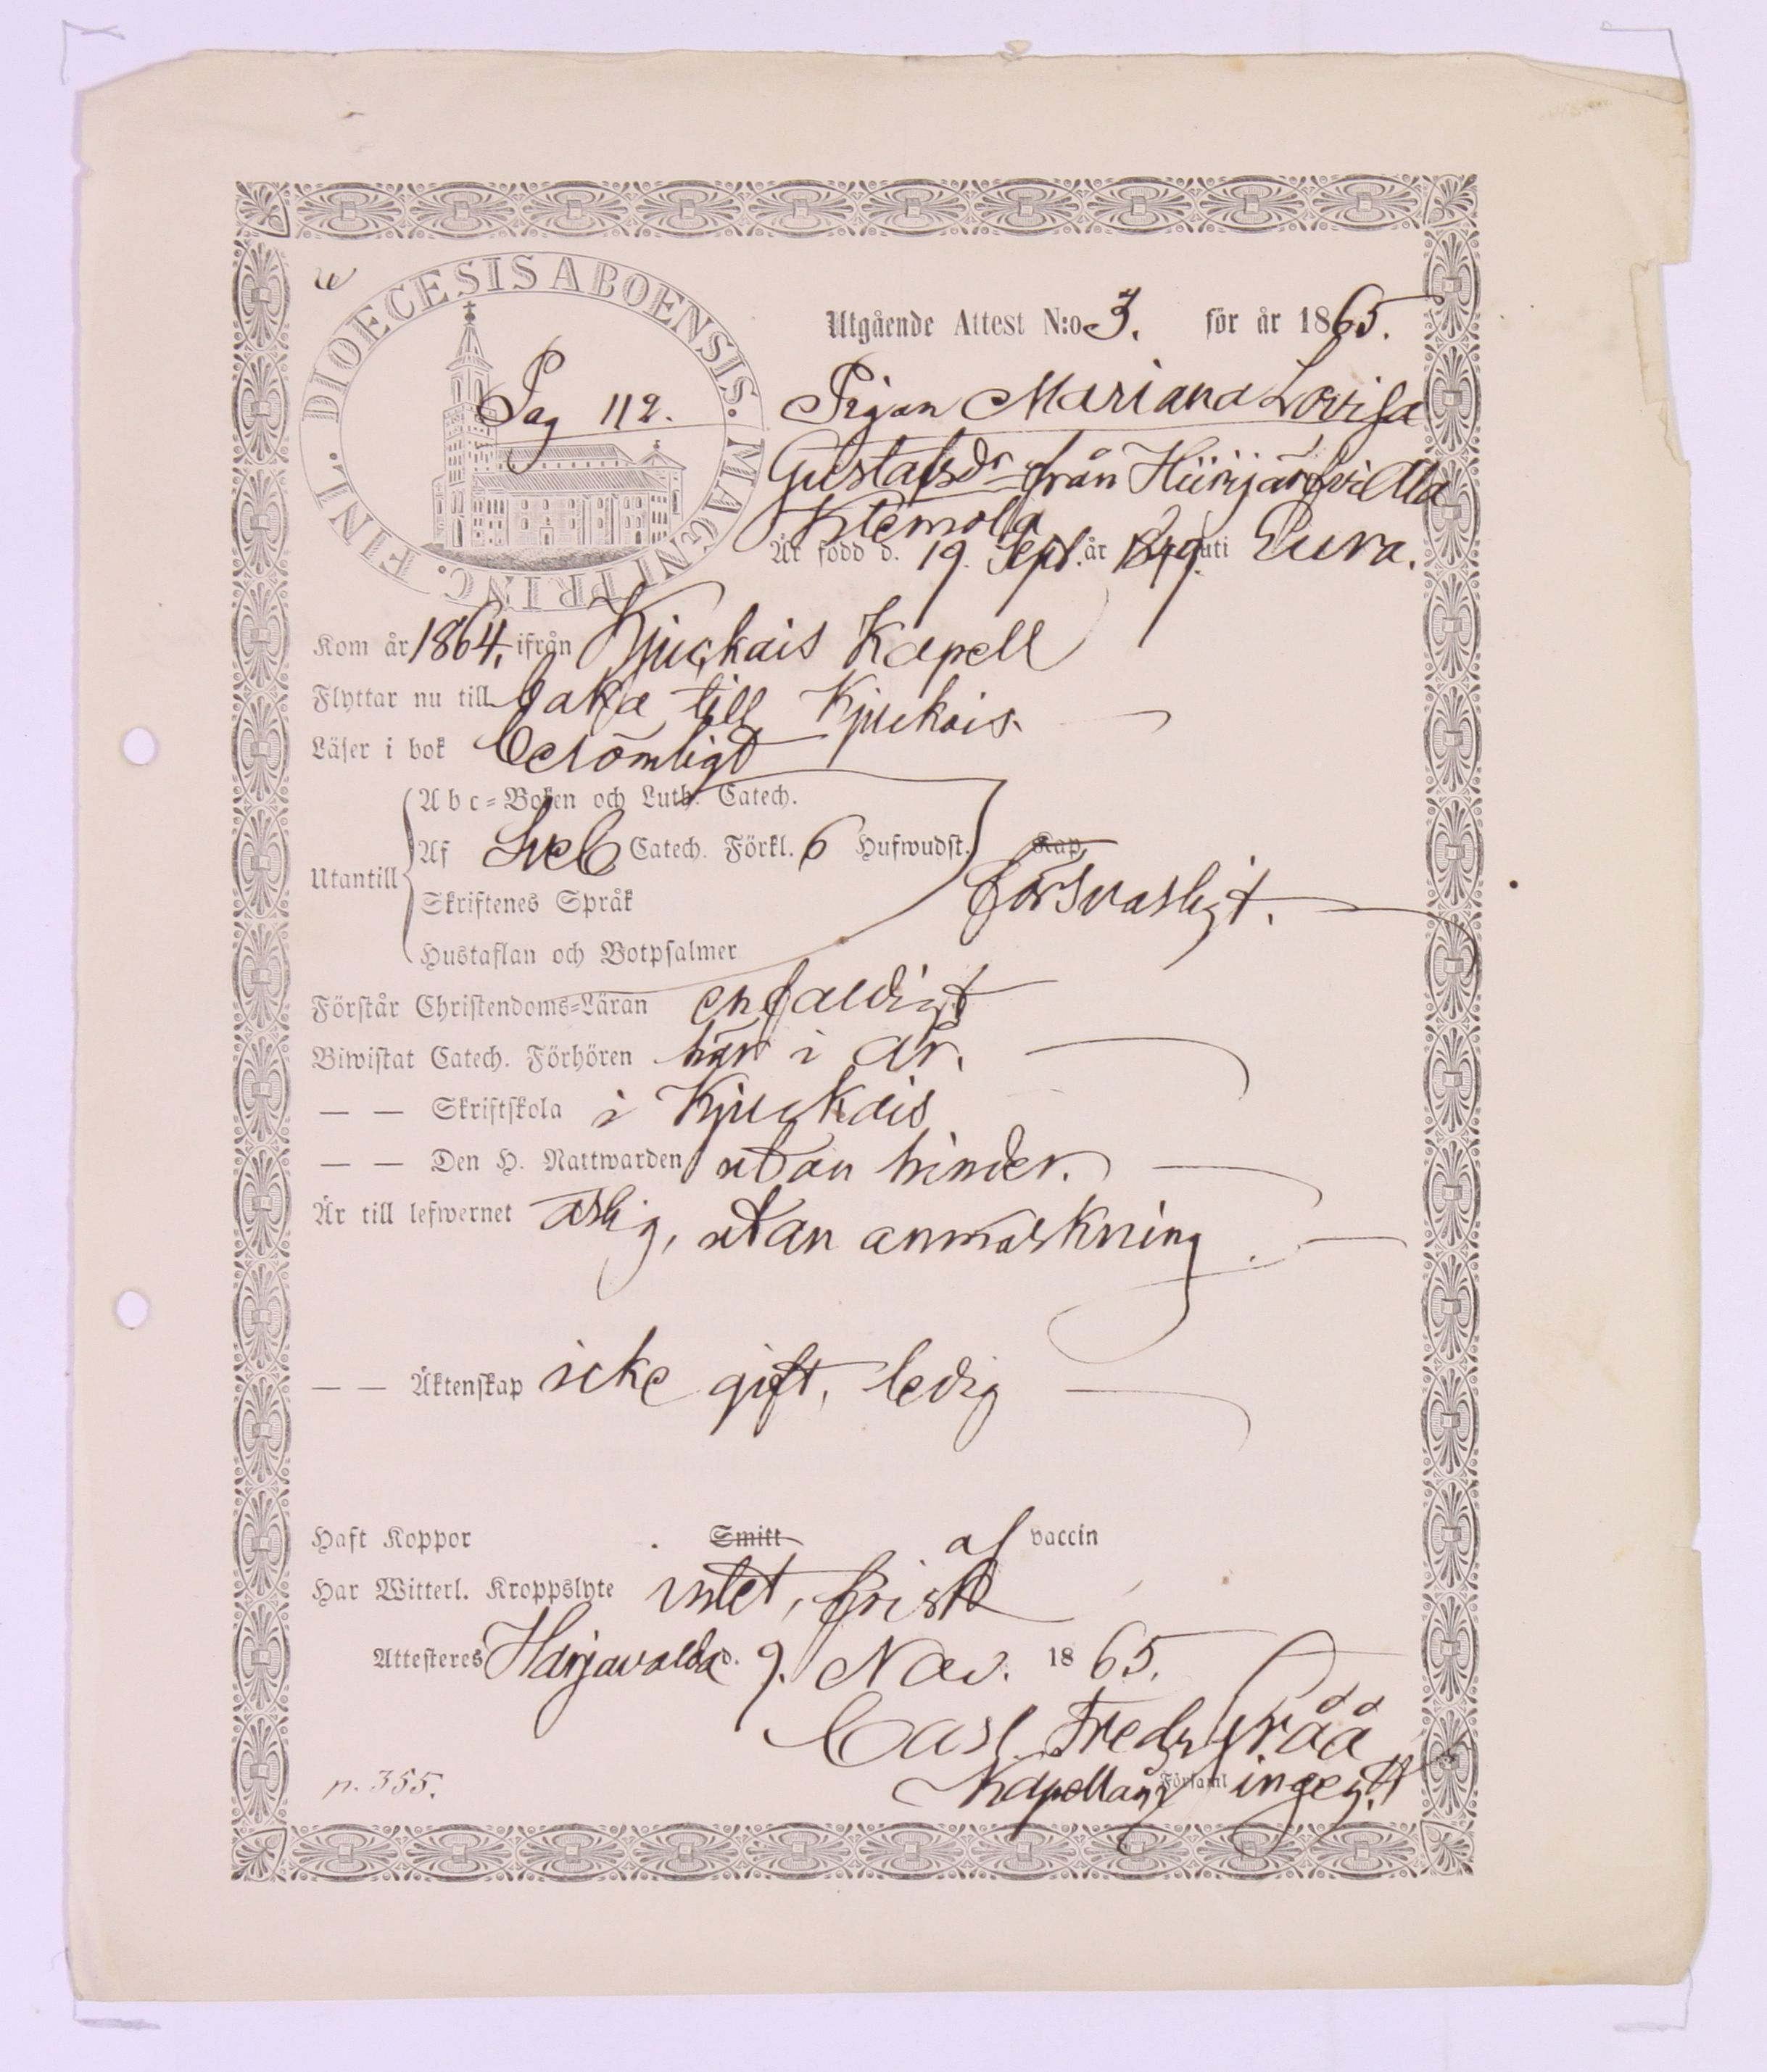 DIOECESIS ABOENSIS. MAGNI PRINC. FINL.
Utgående Attest N:o 3. för år 1865.
Pag 112.
Pigan Mariana Lovisa
Gustafsdr från Hiirijärfvi Ala
Klemola
Är född d. 19. Sept. år 1849. uti Eura.
Kom år 1864. ifrån Kjuckais Kapell
Flyttar nu till baka till Kjuckais.
Läser i bok berömligt
Abc-Boken och Luth. Catech.
Af Sveb Catech. Förkl. 6 Hufwudst. Kap.
Utantill försvarligt.
Skriftenes Språk
Hustaflan och Botpsalmer
Förstår Christendoms-Läran enfaldigt
Biwistat Catech. Förhören här i år.
— — Skriftskola i Kjuckais
— — Den H. Nattwarden utan hinder.
Är till lefwernet ärlig, utan anmärkning.
— — Äktenskap icke gift, ledig
Haft Koppor Smitt af vaccin
Har Witterl. Kroppslyte intet, frisk
Attesteres Harjavalda d. 9. Nov. 1865.
Carl Fredr
Kapellan i Församl
p. 355.